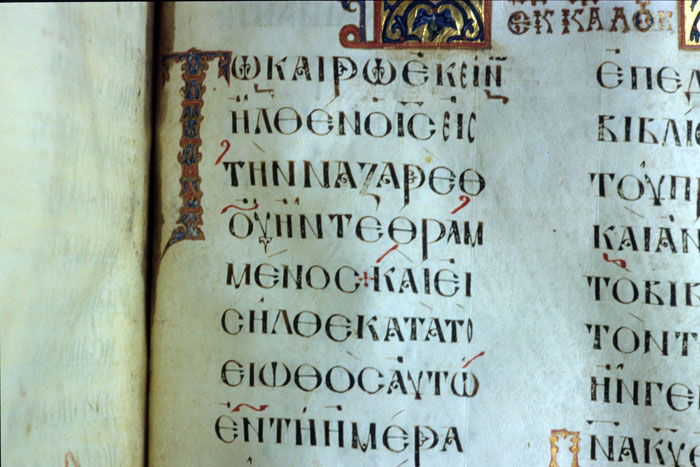 ΤΩΚΑΙΡΩΕΚΕΙΝ
ΗΛΘΕΝΟΙϹΕΙϹ
ΤΗΝΝΑΖΑΡΕΘ
ΟΥΗΝΤΕΘΡΑΜ
ΜΕΝΟϹ+ΚΑΙΕΙ
ϹΗΛΘΕΚΑΤΑΤΟ
ΕΙΩΘΟϹΑΥΤΩ
ΕΝΤΗΗΜΕΡΑ
ΕΠΕΔ
ΒΙΒΛΙ
ΤΟΥΠΡ
ΚΑΙΑΝ
ΤΟΒΙΒ
ΤΟΝΤ
ΗΝΓΕ
ΠΝΑΚΥ